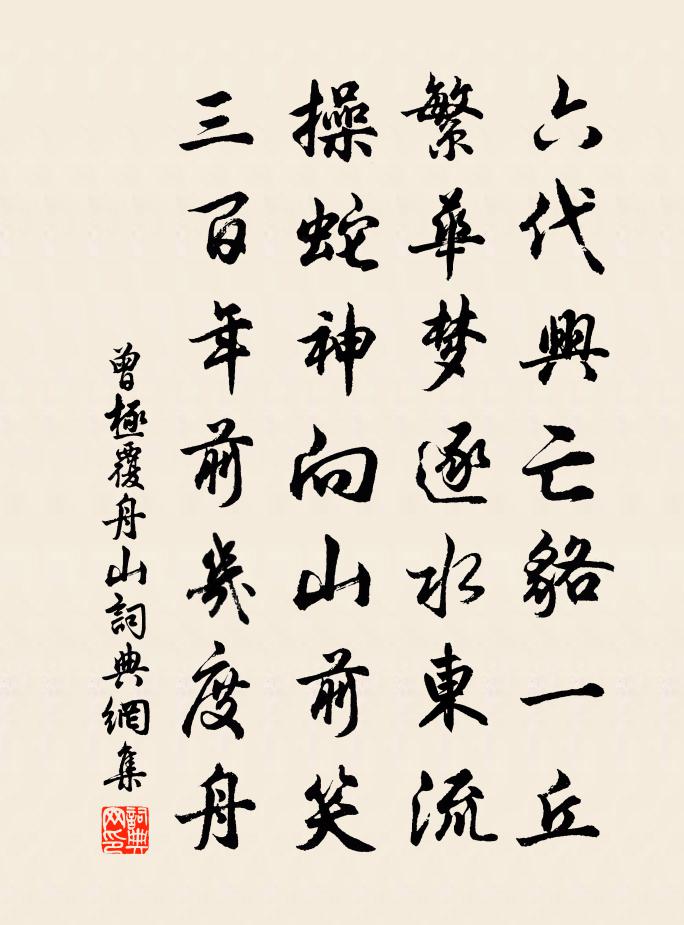 六代興亡貉一丘
繁華梦逐水東流
操蛇神向山前笑
三百年前幾度舟
曾極覆舟山詞典網集
詞典网印